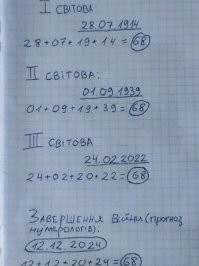 I СВІТОВА:
28.07.1914
28+07+19+14=68
II СВІТОВА:
01.09.1939
01+09+19+39=68
III СВІТОВА
24.02.2022
24+02+20+22=68
ЗАВЕРШЕННЯ ВІЙНИ(ПРОГНОЗ
НУМЕРОЛОГІВ):
12.12.2024
12+12+20+24=68